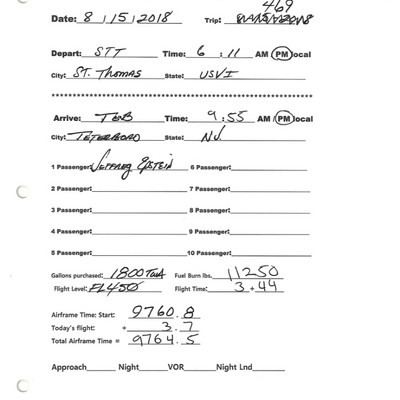 469
Date: 8/15/2018 Trip:
Depart: STT Time: 6:11 AM PM local
City: ST. THOMAS State: USVI
Arrive: TEB Time: 9:55 AM PM local
City: TETERBORO State: NJ.
1 Passenger: JEFFREY EPSTEIN 6 Passenger:
2 Passenger: 7 Passenger:
3 Passenger: 8 Passenger:
4 Passenger: 9 Passenger:
5 Passenger: 10 Passenger:
Gallons purchased: 1800 Fuel Burn lbs. 11250
Flight Level: FL450 Flight Time: 3+44
Airframe Time: Start: 9760.8
Today's flight: + 3.7
Total Airframe Time = 9764.5
Approach Night VOR Night Lnd